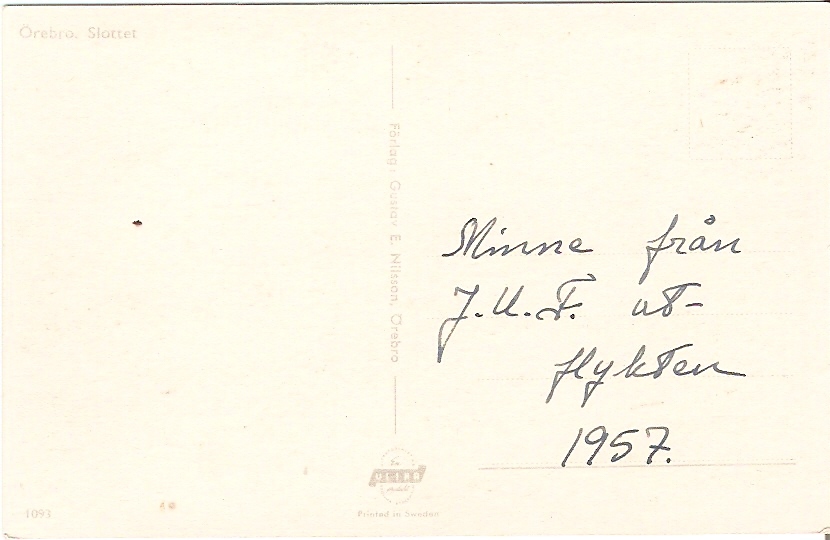 Örebro. Slottet
Förlag: Gustav E. Nilsson, Örebro
Minne från
J.U.F. ut-
flykten
1957.
ULTRA
1093
Printed in Sweden